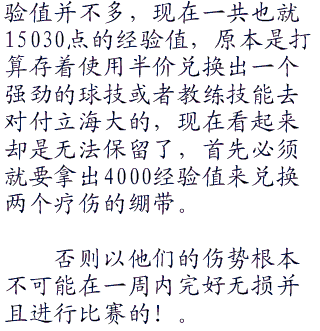 验值并不多，现在一共也就
15030点的经验值，原本是打
算存着使用半价兑换出一个
强劲的球技或者教练技能去
对付立海大的，现在看起来
却是无法保留了，首先必须
就要拿出4000经验值来兑换
两个疗伤的绷带。
否则以他们的伤势根本
不可能在一周内完好无损并
且进行比赛的！。